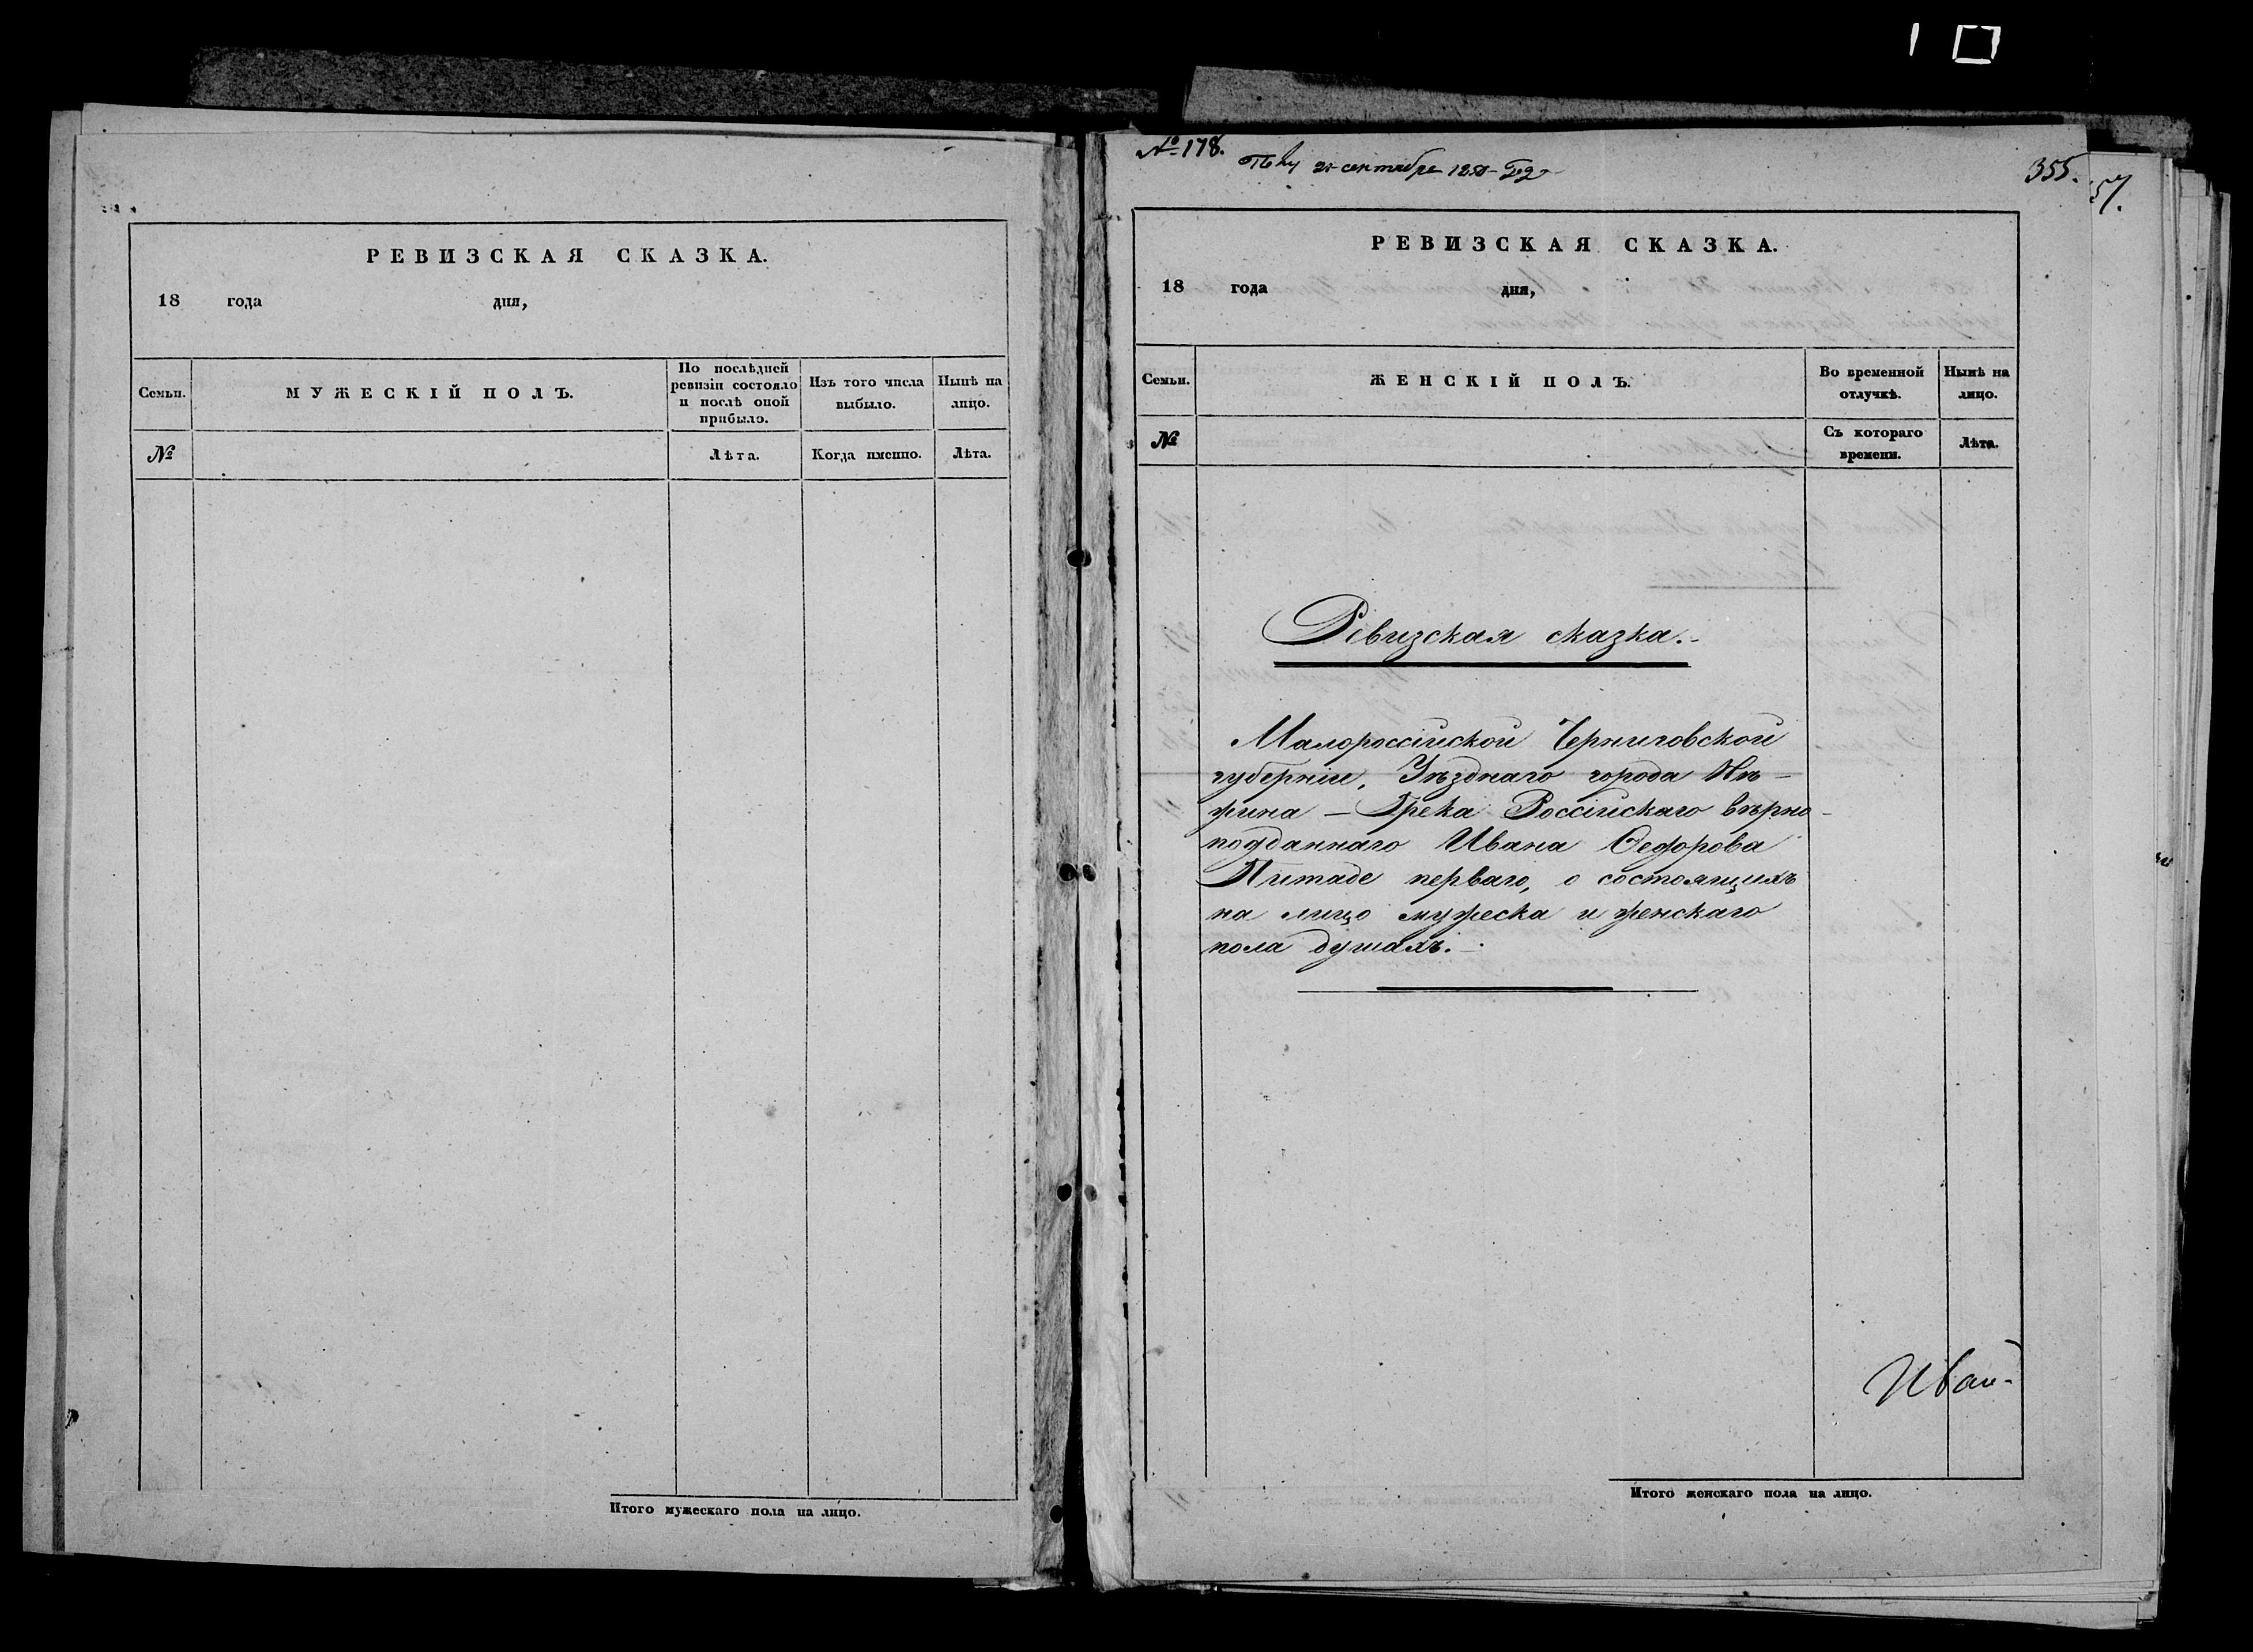 РЕВИЗСКАЯ СКАЗКА.
18 года дня,
Семьи.
МУЖЕСКІЙ ПОЛЪ.
По послѣдней ревизіи состояло и послѣ оной прибыло.
Изъ того числа выбыло.
Нынѣ на лицо.
№
Лѣта.
Когда именно.
Лѣта.
Итого мужескаго пола на лицо.
№ 178.
сентября
355.
57.
РЕВИЗСКАЯ СКАЗКА.
18 года дня,
Семьи.
ЖЕНСКІЙ ПОЛЪ.
Во временной отлучкѣ.
Нынѣ на лицо.
№
Съ котораго времени.
Лѣта.
Ревизская сказка.
Малороссійской Черниговской
губерніи, Уѣзднаго города Нѣ-
жина — Грека Россійскаго вѣрно-
подданнаго Ивана Ѳедорова
Питаде перваго, о состоящихъ
на лицо мужеска и женскаго
пола душахъ.
Иван-
Итого женскаго пола на лицо.